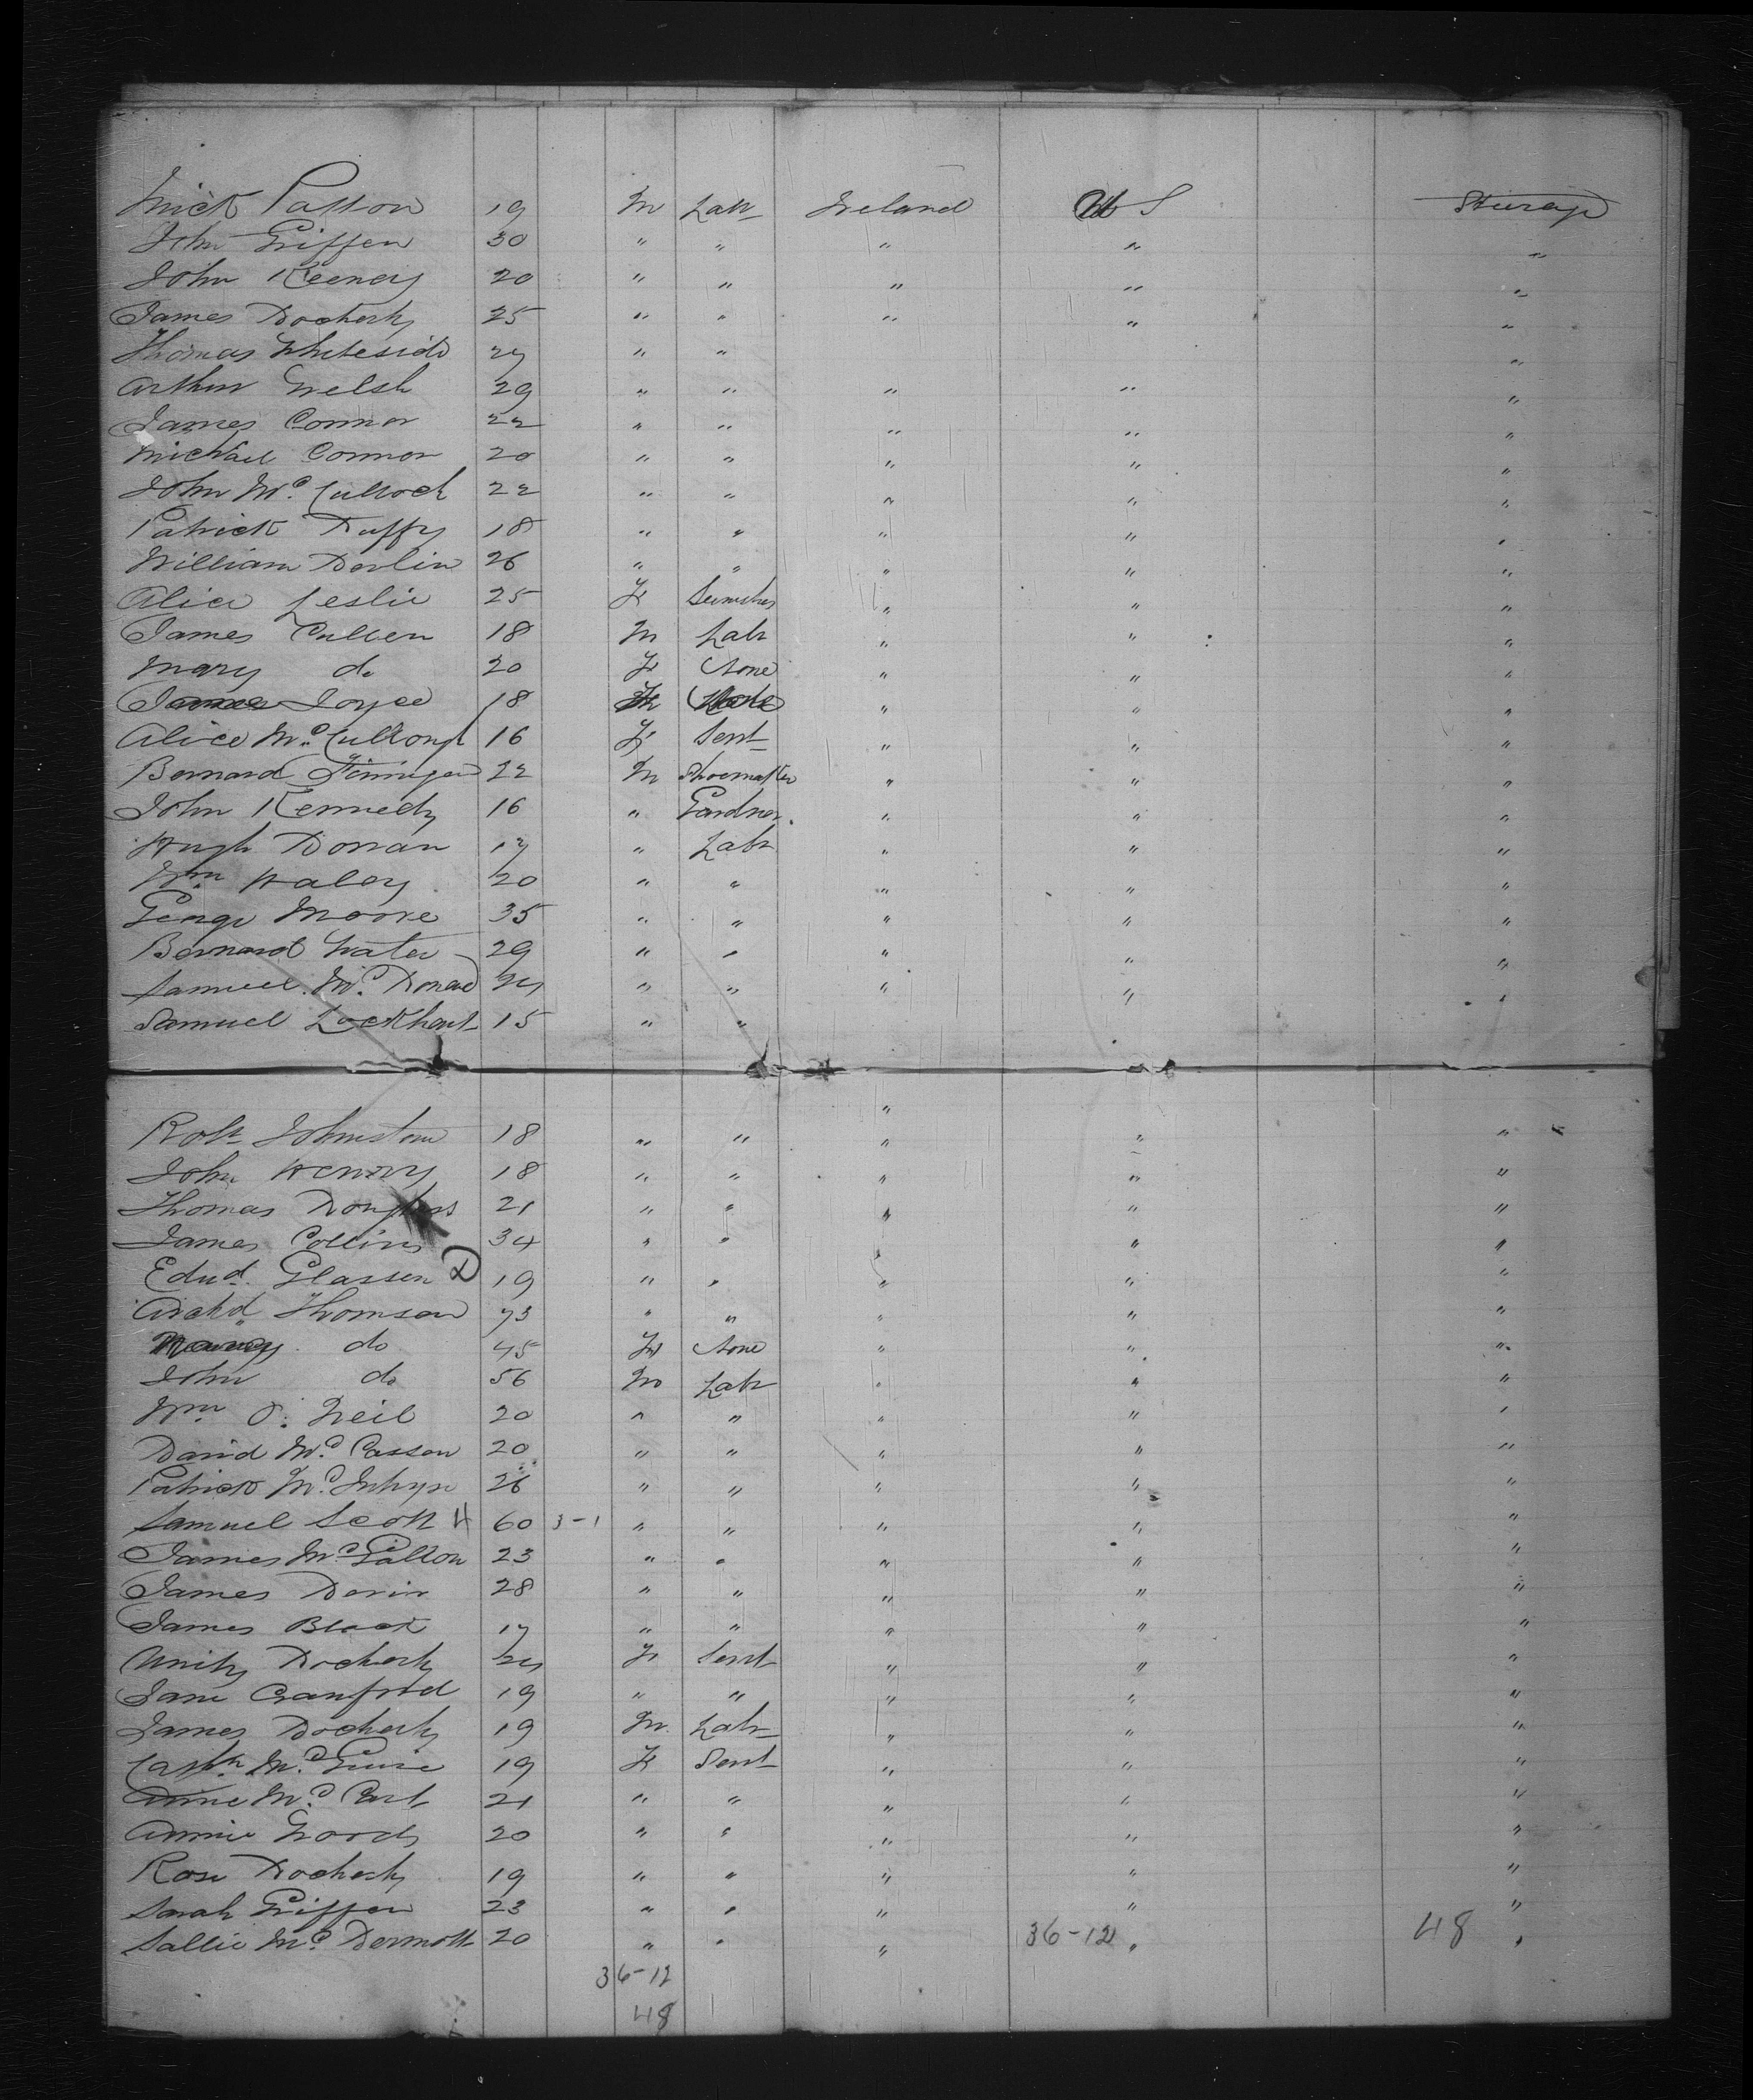 Mick Patton 19 M Labr Ireland U S Steerage
John Griffen 30 " " " " "
John Keeney 20 " " " " "
James Docherty 25 " " " " "
Thomas Whiteside 27 " " "
Arthur Welsh 29 " " " " "
James Connor 22 " " " " "
Michael Connor 20 " " " " "
John McCulloch 22 " " " " "
Patrick Duffy 18 " " " " "
William Devlin 26 " " " " "
Alice Leslie 25 F " " "
James Cullen 18 M Labr " " "
Mary do 20 F None " " "
James Joyce 18 " " "
Alice McCullough 16 F Servt " " "
Bernard 22 M Shoemaker " " "
John Kennedy 16 " Gardner " " "
Hugh Dorran 17 " Labr " " "
Wm Haley 20 " " " " "
George Moore 35 " " " " "
Bernard 29 " " " " "
Samuel " " " " "
Samuel Lockhart 15 " "
"
Robt Johnston 18 " " " " "
John Henry 18 " " " " "
Thomas Douglass 21 " " " " "
James Collins 34 " " " " "
Edwd. Glassen D 19 " " " " "
Archd Thomson 73 " " " " "
Nancy do 45 F None " " "
John do 56 M Labr " " "
Wm O. Neil 20 " " " " "
David McCasson 20 " " " " "
Patrick McIntyre 26 " " " " "
Samuel Scott H 60 3-1 " " " " "
James McGallon 23 " " " " "
James Devin 28 " " " " "
James Black 17 " " " " "
Unity Docherty F Servt " " "
Jane Crawford 19 " " " " "
James Docherty 19 M Labr " " "
Cathn McGuire 19 F Servt " " "
Annie McCart 21 " " " " "
Annie Woods 20 " " " " "
Rose Docherty 19 " " " " "
Sarah Griffen 23 " " " " "
Sallie McDermott 20 " " " 36-12 " 48 "
36-12
48